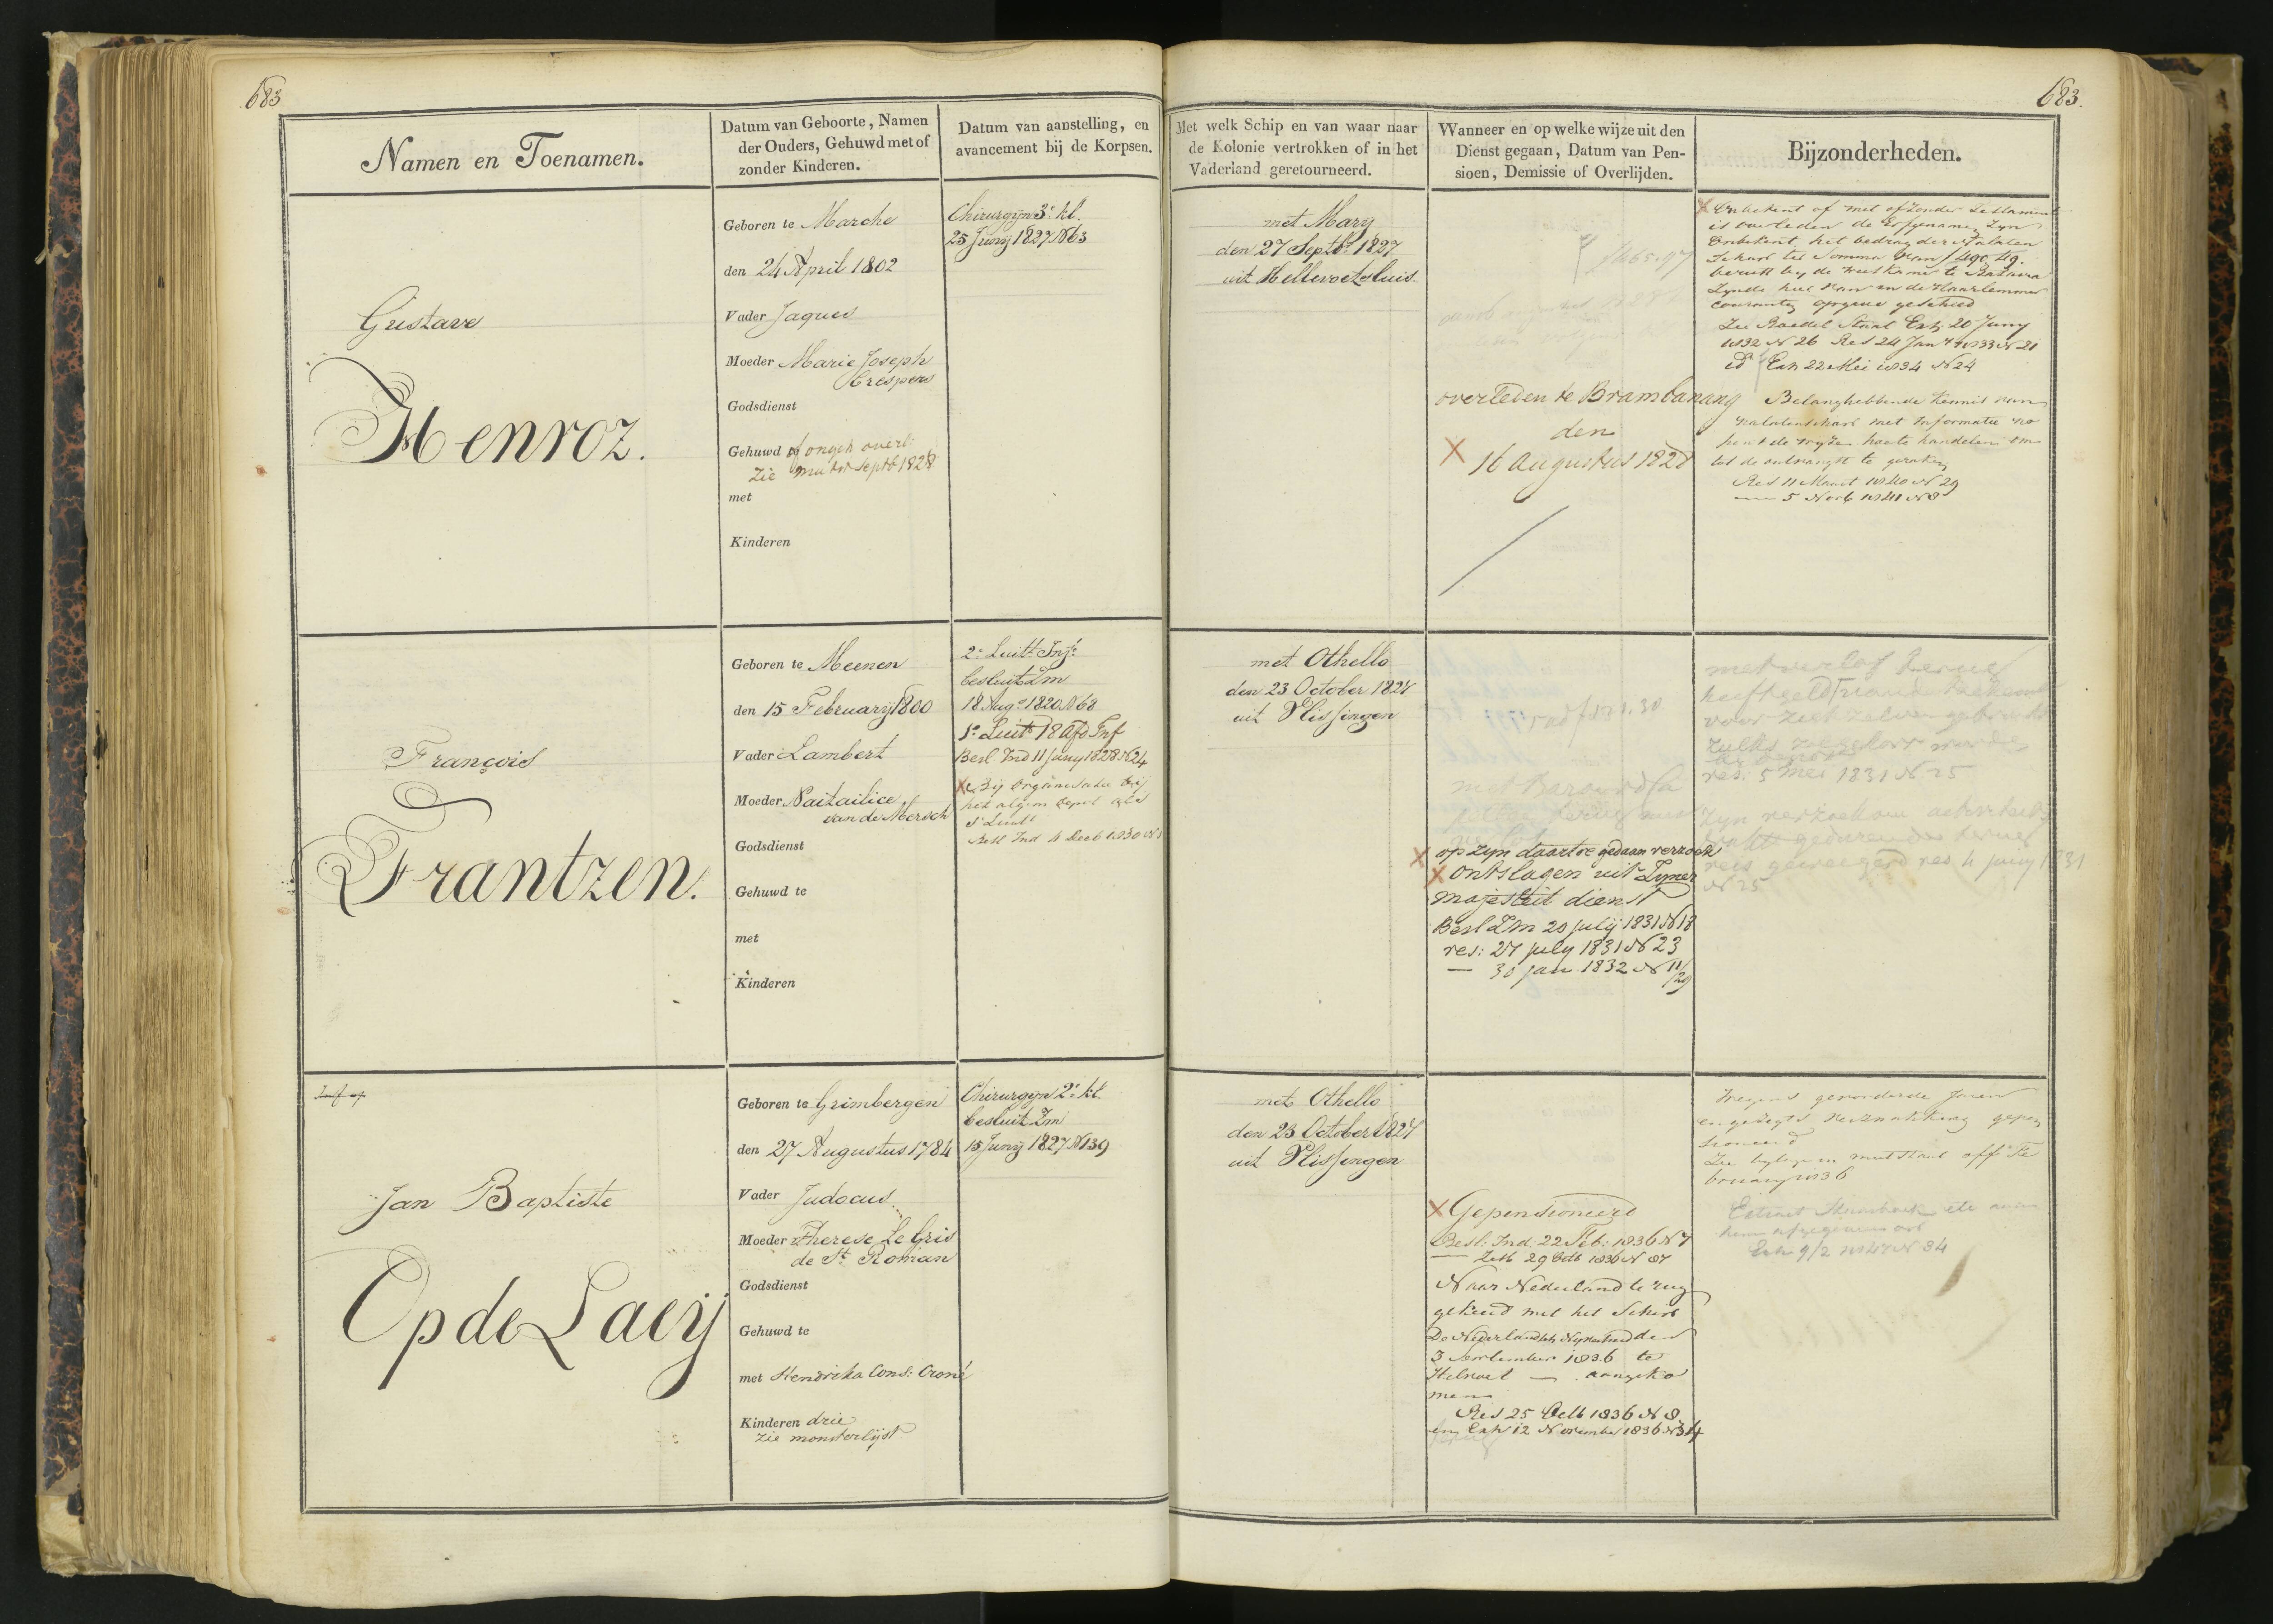 683
683.
Namen en Toenamen.
Datum van Geboorte, Namen
der Ouders, Gehuwd met of
zonder Kinderen.
Datum van aanstelling, en
avancement bij de Korpsen.
Met welk Schip en van waar naar
de Kolonie vertrokken of in het
Vaderland geretourneerd.
Wanneer en op welke wijze uit den
Dienst gegaan, Datum van Pen-
sioen, Demissie of Overlijden.
Bijzonderheden.
Gustave
Henroz.
Geboren te Marche
den 24 April 1802
Vader Jaques
Moeder Marie Joseph
Crespers
Godsdienst
Gehuwd of ongeh overl:
Zie Sept 1828
met
Kinderen
Chirurgijn 3e kl.
25 Junij 1827 N 63
met Mary
den 27 Septbr 1827
uit Hellevoetsluis
overleden te Brambanang
den
16 Augustus 1828
Onbekent of met of zonder Testament
is overleden de Erfgenamen Zyn
Onbekent, het bedrag der Nalaten
Schap ter Somma van f 490,49.
berust by de weeskamer te Batavia
Zynde hier van in de Haarlemmer
courant opgave geschied
Zie Boedel Staat Exh 20 Juny
1832 N 26 Res 24 Jany 1833 N 21
id Exh 22 Mei 1834 N 24
Belanghebbende kennis van
nalatenschap met Informatie no
pens de wyze hoe te handelen om
tot de ontvangst te geraken
Res 11 Maart 1840 N 29
5 Novb 1841 N 8
François
Frantzen.
Geboren te Meenen
den 15 February 1800
Vader Lambert
Moeder Naitailice
van de Mersch
Godsdienst
Gehuwd te
met
Kinderen
2e Luitt Infe
besluit Zm
18 Aug 1820 N 68
1e Luitt 18 Afd Inf
Besl Ind 11 Juny 1828 N 24
Bij Organisatie bij
het algem depot als
1e Luitt
Besl Ind 4 Decb 1830 N 1
met Othello
den 23 October 1827
uit Vlissingen
op zyn daartoe gedaan verzoek
ontslagen uit Zyner
Majesteit dienst
Besl Zm 20 july 1831 N 18
res: 27 july 1831 N 23
30 jan 1832 N 11/29
met verlof terug
res: 5 Mei 1831 N 25
reis geweigerd res 4 juny 1831
N 25
Jan Baptiste
Op de Laeij
Geboren te Grimbergen
den 27 Augustus 1784
Vader Judocus
Moeder Therese Le Gris
de St. Roman
Godsdienst
Gehuwd te
met Hendrika Cons: Croné
Kinderen drie
zie monsterlijst
Chirurgijn 2e kl.
besluit Zm
15 Junij 1827 N 139
met Othello
den 23 October 1827
uit Vlissingen
Gepensioneerd
Besl: Ind: 22 Feb: 1836 N 7
29 Octb 1836 N 87
Naar Nederland terug
gekeerd met het Schip
De Nederlandsch Nyverheid den
3 September 1836 te
Helvoet aangeko
men
Res 25 Octb 1836 N 8
en Exh 12 November 1836 N 34
Wegens gevorderde Jaren
gepen
sioneerd
Zie offi Fe
bruary 1836
Extract Stamboek
hem afgegeven
Exh 9/2 1847 N 34